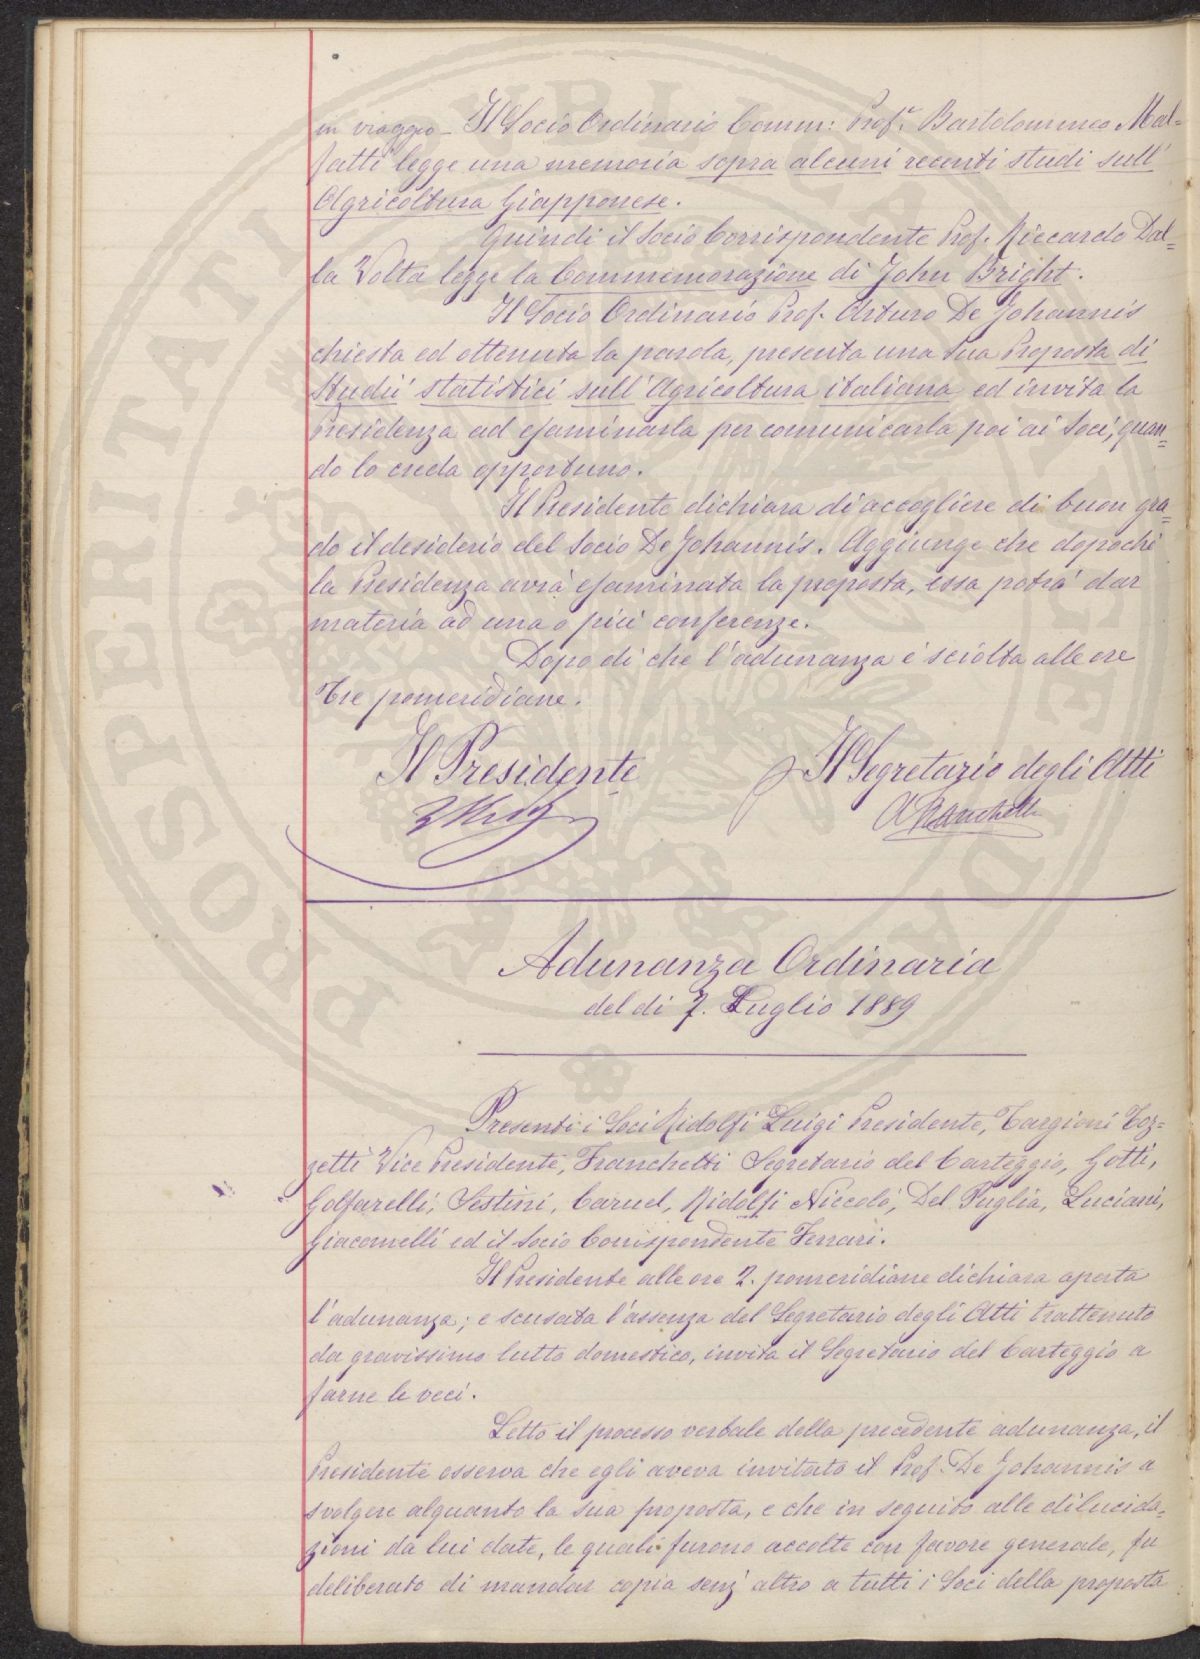 in viaggio - Il Socio Ordinario Comm: Prof.r Bartolommeo Mal=
fatti legge una memoria sopra alcuni recenti studi sull'
Agricoltura Giapponese.
Quindi il Socio Corrispondente Prof. Riccardo Dal=
la Volta legge la Commemorazione di John Bright.
Il Socio Ordinario Prof. Arturo De Johannis
chiesta ed ottenuta la parola, presenta una sua Proposta di
Studii statistici sull'Agricoltura italiana ed invita la
Presidenza ad esaminarla per comunicarla poi ai Soci, quan=
do lo creda opportuno.
Il Presidente dichiara di accogliere di buon gra=
do il desiderio del Socio De Johannis. Aggiunge che dopochè
la Presidenza avrà esaminata la proposta, essa potrà dar
materia ad una o più conferenze.
Dopo di che l'adunanza è sciolta alle ore
Tre pomeridiane.
Il Presidente
Il Segretario degli Atti
Adunanza Ordinaria
del di 7. Luglio 1889
Presenti i Soci Ridolfi Luigi Presidente, Targioni Toz=
zetti Vice Presidente, Franchetti Segretario del Carteggio, Gotti,
Golfarelli, Sestini, Caruel, Ridolfi Niccolò, Del Puglia, Luciani,
Giacomelli ed il Socio Corrispondente Ferrari.
Il Presidente alle ore 2. pomeridiane dichiara aperta
l'adunanza; e scusata l'assenza del Segretario degli Atti trattenuto
da gravissimo lutto domestico, invita il Segretario del Carteggio a
farne le veci.
Letto il processo verbale della precedente adunanza, il
Presidente osserva che egli aveva invitato il Prof. De Johannis a
svolgere alquanto la sua proposta, e che in seguito alle dilucida=
zioni da lui date, le quali furono accolte con favore generale, fu
deliberato di mandar copia senz'altro a tutti i Soci della proposta
PROSPERITATI PVBLICAE